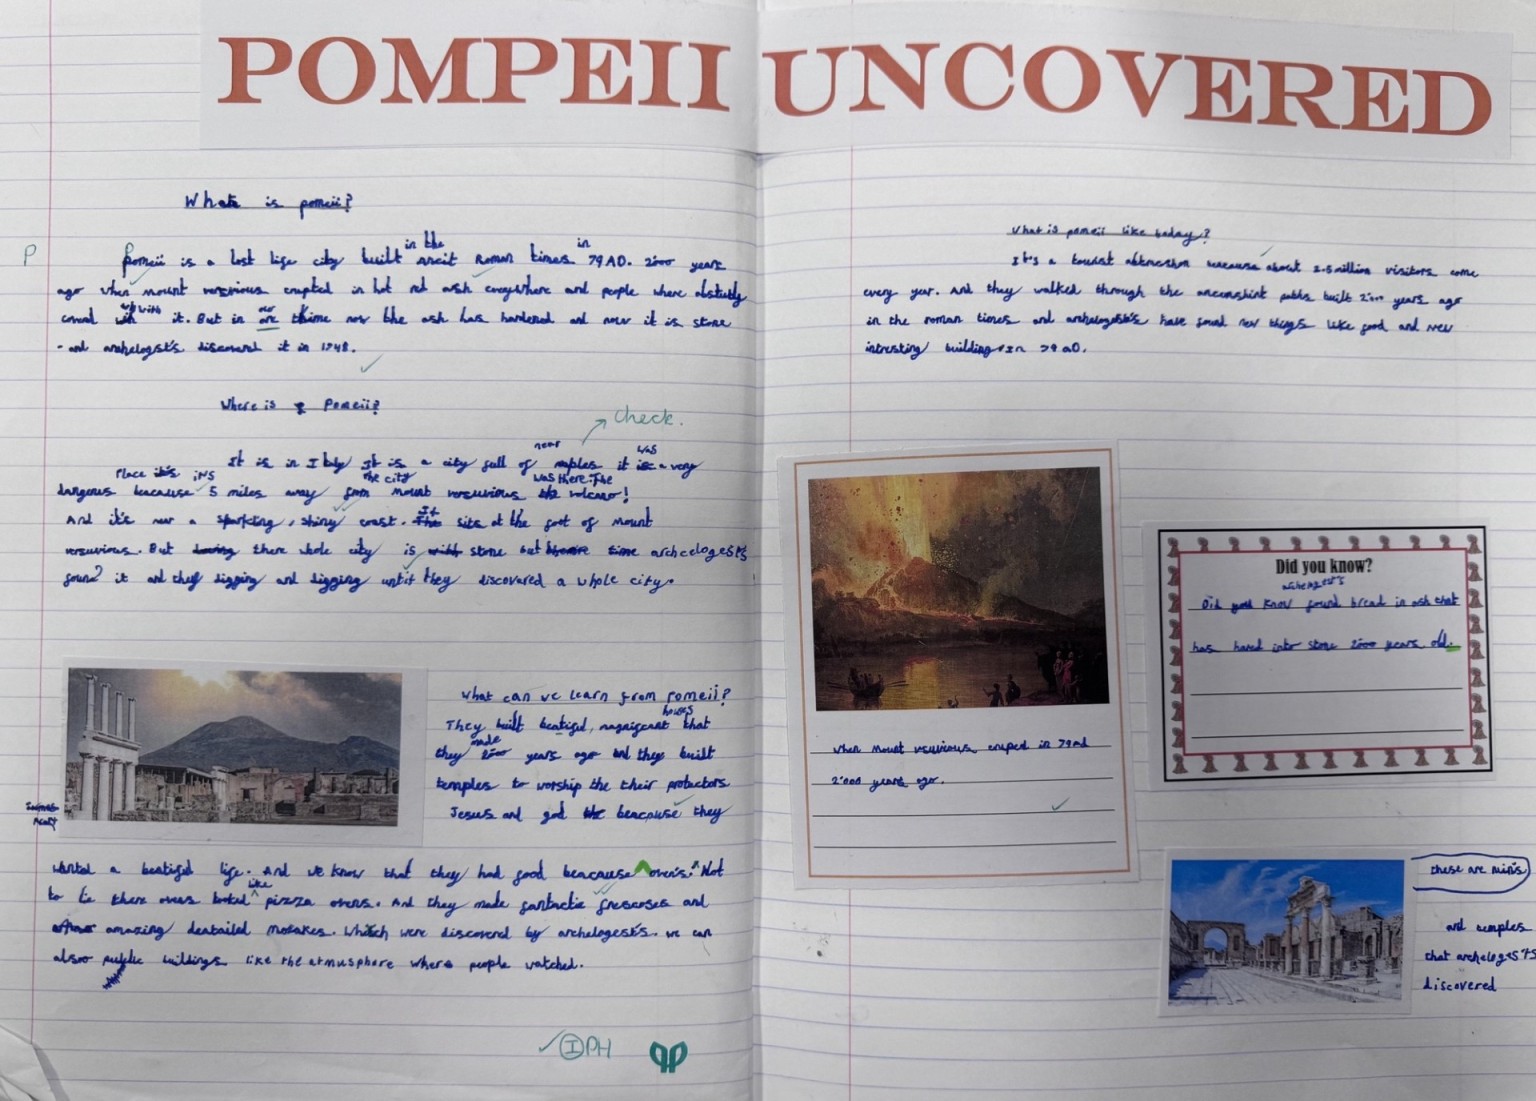 POMPEII UNCOVERED
What is pomeii?
P
in the in
Pomeii is a lost life city built ancit Roman times 79AD. 2000 years
ago when mount versuvious erupted in hot red ash everywhere and people where abslutly
coverd with it. But in our thime now the ash has hardened and now it is stone
- and archelogist's discoverd it in 1748.
Where is Pomeii?
check.
near was
It is in Italy It is a city full of naples it is a very
Place it's the city was there. The
dangous beacause 5 miles away from mount versuvious the volcano!
And it's near a sparkling, shiny coast. It sits at the foot of mount
versuvious. But there whole city is stone but archeologest's
found it and they digging and digging until they discovered a whole city.
What can we learn from Pomeii?
houses
They built beatiful, magnificant that
made
they 2000 years ago and they built
temples to worship the their protectors
Jesus and god the beacause they
wanted a beatiful life. And we know that they had food beacause ovens. Not
like
to lie there ovens looked pizza ovens. And they made fantactic frescoses and
amazing deatailed mosakes. Which were discovered by archelogest's. we can
also public buildings like the atmusphere where people watched.
IPH
What is pomeii like today?
It's a tourist attrection beacause about 2.5 million visitors come
every year. And they walked through the anceonshint paths built 2000 years ago
in the roman times and archelogests's have found new things like food and new
intresting building in 79 AD.
when mount vesuvious eruped in 79ad
2000 years ago.
Did you know?
archelogest's
Did you know found bread in ash that
has hared into stone 2000 years old.
these are ruin's
and temples
that archelogest's
discovered